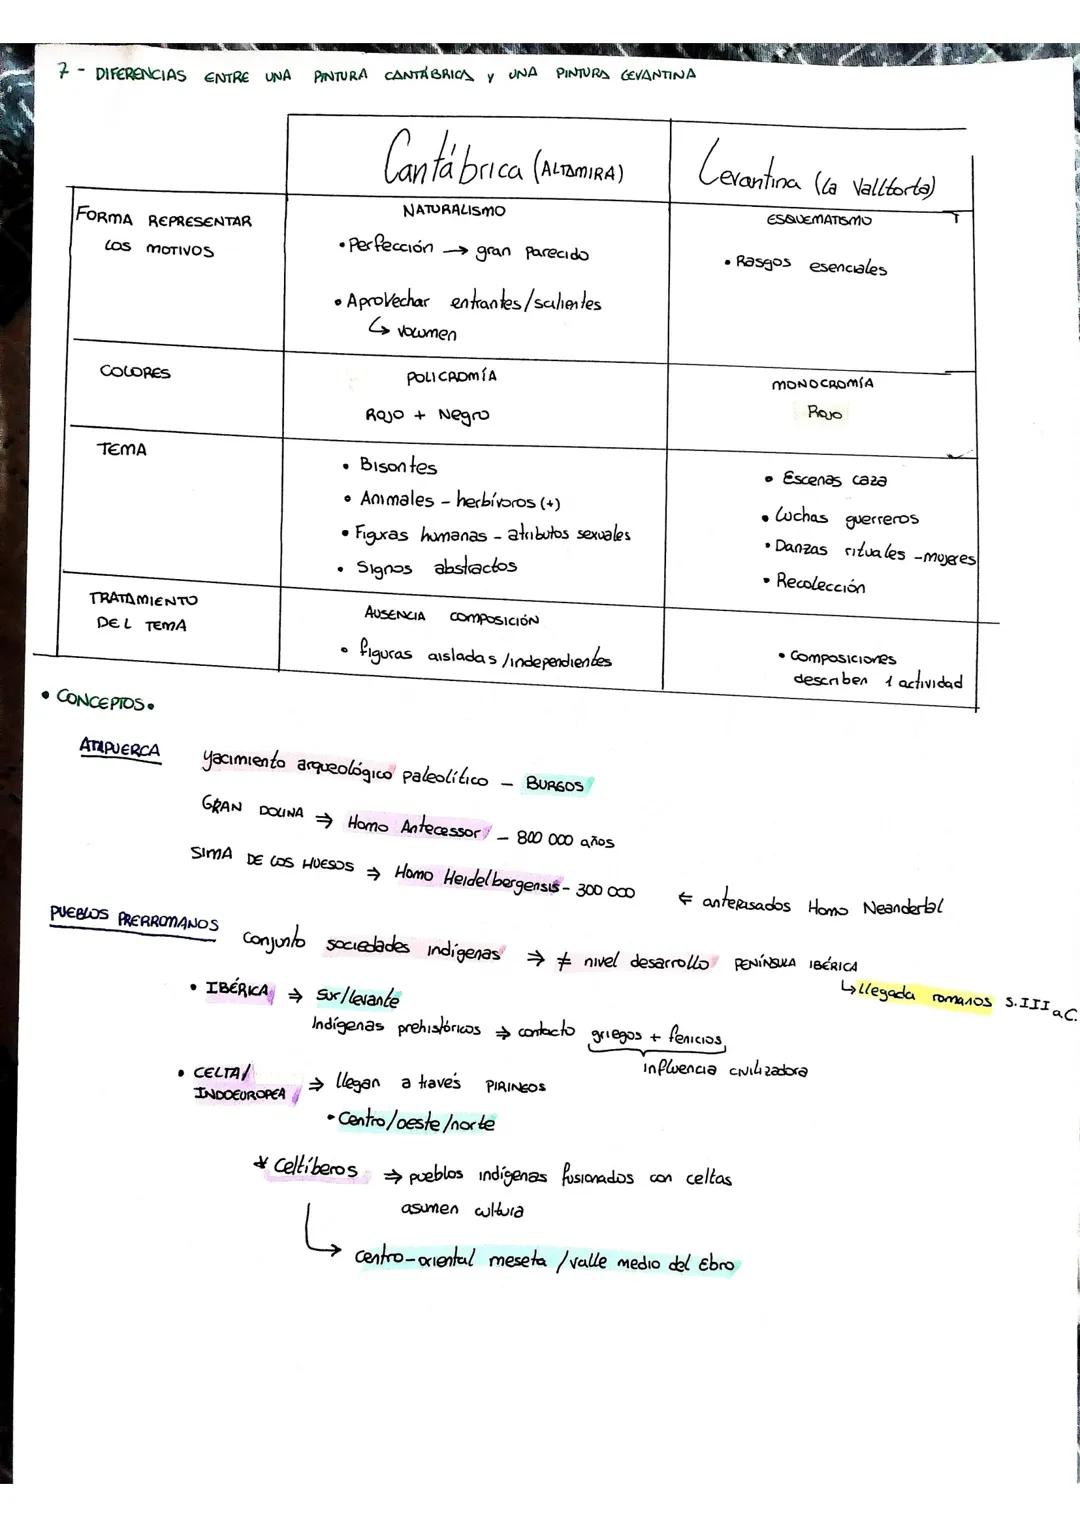 7 - DIFERENCIAS ENTRE UNA PINTURA CANTÁBRICA y UNA PINTURA LEVANTINA
Cantábrica (ALTAMIRA)
Levantina (La Valltorta)
FORMA REPRESENTAR
LOS MOTIVOS
NATURALISMO
• Perfección → gran parecido
• Aprovechar entrantes/salientes
↳ volumen
ESQUEMATISMO
• Rasgos esenciales
COLORES
POLICROMÍA
Rojo + Negro
MONOCROMÍA
Rojo
TEMA
• Bisontes
• Animales - herbívoros (+)
• Figuras humanas - atributos sexuales
• Signos abstractos
• Escenas caza
• Luchas guerreros
• Danzas rituales - mujeres
• Recolección
TRATAMIENTO
DEL TEMA
AUSENCIA COMPOSICIÓN
• figuras aisladas/independientes
• Composiciones
describen 1 actividad
• CONCEPTOS •
ATAPUERCA yacimiento arqueológico paleolítico - BURGOS
GRAN DOLINA ⇒ Homo Antecessor - 800 000 años
SIMA DE LOS HUESOS ⇒ Homo Heidelbergensis - 300 000 ⇐ antepasados Homo Neandertal
PUEBLOS PRERROMANOS Conjunto sociedades indígenas ⇒ ≠ nivel desarrollo PENÍNSULA IBÉRICA
↳ llegada romanos S.III a.C.
• IBÉRICA ⇒ Sur/levante
Indígenas prehistóricos ⇒ contacto griegos + fenicios
influencia civilizadora
• CELTA/
INDOEUROPEA ⇒ llegan a través PIRINEOS
• Centro/oeste/norte
* Celtíberos ⇒ pueblos indígenas fusionados con celtas
asumen cultura
↳ centro-oriental meseta / valle medio del Ebro